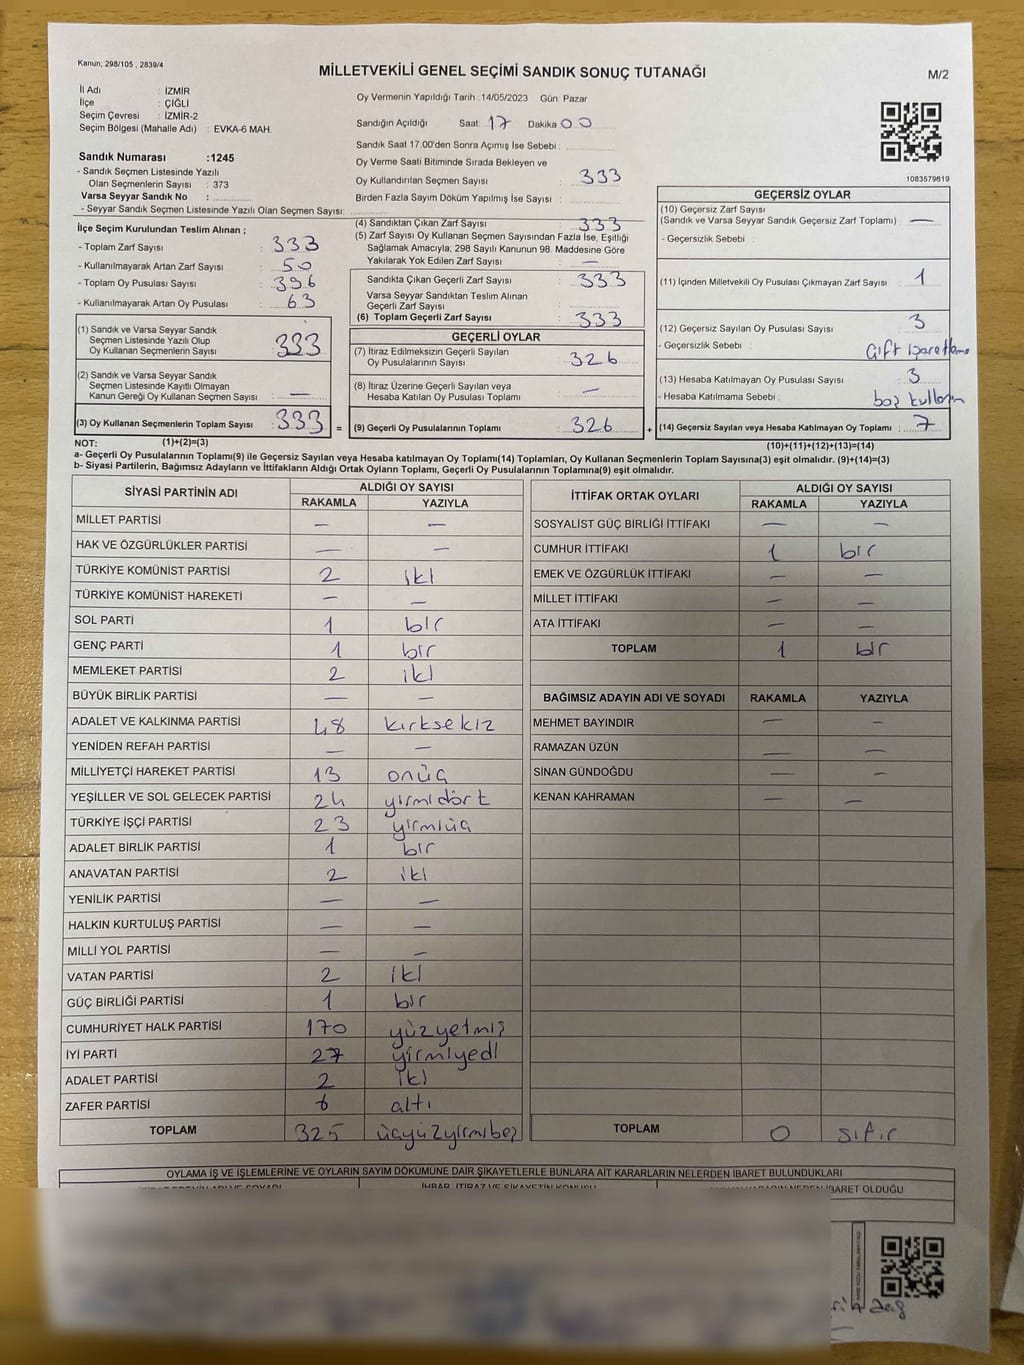 Kanun; 298/105 , 2839/4
MİLLETVEKİLİ GENEL SEÇİMİ SANDIK SONUÇ TUTANAĞI
M/2
İl Adı : İZMİR
İlçe : ÇİĞLİ
Seçim Çevresi : İZMİR-2
Seçim Bölgesi (Mahalle Adı) : EVKA-6 MAH.
Sandık Numarası :1245
- Sandık Seçmen Listesinde Yazılı
Olan Seçmenlerin Sayısı : 373
Varsa Seyyar Sandık No :
- Seyyar Sandık Seçmen Listesinde Yazılı Olan Seçmen Sayısı:
Oy Vermenin Yapıldığı Tarih : 14/05/2023 Gün: Pazar
Sandığın Açıldığı Saat: 17 Dakika 00
Sandık Saat 17.00'den Sonra Açımış İse Sebebi :
Oy Verme Saati Bitiminde Sırada Bekleyen ve
Oy Kullandırılan Seçmen Sayısı : 333
Birden Fazla Sayım Döküm Yapılmış İse Sayısı :
1083579619
İlçe Seçim Kurulundan Teslim Alınan ;
- Toplam Zarf Sayısı : 333
- Kullanılmayarak Artan Zarf Sayısı : 50
- Toplam Oy Pusulası Sayısı : 396
- Kullanılmayarak Artan Oy Pusulası : 63
(1) Sandık ve Varsa Seyyar Sandık
Seçmen Listesinde Yazılı Olup
Oy Kullanan Seçmenlerin Sayısı : 333
(2) Sandık ve Varsa Seyyar Sandık
Seçmen Listesinde Kayıtlı Olmayan
Kanun Gereği Oy Kullanan Seçmen Sayısı : —
(3) Oy Kullanan Seçmenlerin Toplam Sayısı : 333 =
(4) Sandıktan Çıkan Zarf Sayısı : 333
(5) Zarf Sayısı Oy Kullanan Seçmen Sayısından Fazla İse, Eşitliği
Sağlamak Amacıyla; 298 Sayılı Kanunun 98. Maddesine Göre
Yakılarak Yok Edilen Zarf Sayısı : —
Sandıkta Çıkan Geçerli Zarf Sayısı : 333
Varsa Seyyar Sandıktan Teslim Alınan
Geçerli Zarf Sayısı :
(6) Toplam Geçerli Zarf Sayısı : 333
GEÇERLİ OYLAR
(7) İtiraz Edilmeksizin Geçerli Sayılan
Oy Pusulalarının Sayısı : 326
(8) İtiraz Üzerine Geçerli Sayılan veya
Hesaba Katılan Oy Pusulası Toplamı : —
(9) Geçerli Oy Pusulalarının Toplamı : 326 +
GEÇERSİZ OYLAR
(10) Geçersiz Zarf Sayısı
(Sandık ve Varsa Seyyar Sandık Geçersiz Zarf Toplamı) : —
- Geçersizlik Sebebi :
(11) İçinden Milletvekili Oy Pusulası Çıkmayan Zarf Sayısı : 1
(12) Geçersiz Sayılan Oy Pusulası Sayısı : 3
- Geçersizlik Sebebi : Çift işaretleme
(13) Hesaba Katılmayan Oy Pusulası Sayısı : 3
- Hesaba Katılmama Sebebi : boş kullanım
(14) Geçersiz Sayılan veya Hesaba Katılmayan Oy Toplamı : 7
NOT: (1)+(2)=(3) (10)+(11)+(12)+(13)=(14)
a- Geçerli Oy Pusulalarının Toplamı(9) ile Geçersiz Sayılan veya Hesaba katılmayan Oy Toplamı(14) Toplamları, Oy Kullanan Seçmenlerin Toplam Sayısına(3) eşit olmalıdır. (9)+(14)=(3)
b- Siyasi Partilerin, Bağımsız Adayların ve İttifakların Aldığı Ortak Oyların Toplamı, Geçerli Oy Pusulalarının Toplamına(9) eşit olmalıdır.
SİYASİ PARTİNİN ADI ALDIĞI OY SAYISI
RAKAMLA YAZIYLA
MİLLET PARTİSİ — —
HAK VE ÖZGÜRLÜKLER PARTİSİ — —
TÜRKİYE KOMÜNİST PARTİSİ 2 iki
TÜRKİYE KOMÜNİST HAREKETİ — —
SOL PARTİ 1 bir
GENÇ PARTİ 1 bir
MEMLEKET PARTİSİ 2 iki
BÜYÜK BİRLİK PARTİSİ — —
ADALET VE KALKINMA PARTİSİ 48 kırksekiz
YENİDEN REFAH PARTİSİ — —
MİLLİYETÇİ HAREKET PARTİSİ 13 onüç
YEŞİLLER VE SOL GELECEK PARTİSİ 24 yirmidört
TÜRKİYE İŞÇİ PARTİSİ 23 yirmiüç
ADALET BİRLİK PARTİSİ 1 bir
ANAVATAN PARTİSİ 2 iki
YENİLİK PARTİSİ — —
HALKIN KURTULUŞ PARTİSİ — —
MİLLİ YOL PARTİSİ — —
VATAN PARTİSİ 2 iki
GÜÇ BİRLİĞİ PARTİSİ 1 bir
CUMHURİYET HALK PARTİSİ 170 yüzyetmiş
İYİ PARTİ 27 yirmiyedi
ADALET PARTİSİ 2 iki
ZAFER PARTİSİ 6 altı
TOPLAM 325 üçyüzyirmibeş
İTTİFAK ORTAK OYLARI ALDIĞI OY SAYISI
RAKAMLA YAZIYLA
SOSYALİST GÜÇ BİRLİĞİ İTTİFAKI — —
CUMHUR İTTİFAKI 1 bir
EMEK VE ÖZGÜRLÜK İTTİFAKI — —
MİLLET İTTİFAKI — —
ATA İTTİFAKI — —
TOPLAM 1 bir
BAĞIMSIZ ADAYIN ADI VE SOYADI RAKAMLA YAZIYLA
MEHMET BAYINDIR — —
RAMAZAN ÜZÜN — —
SİNAN GÜNDOĞDU — —
KENAN KAHRAMAN — —
TOPLAM 0 sıfır
OYLAMA İŞ VE İŞLEMLERİNE VE OYLARIN SAYIM DÖKÜMÜNE DAİR ŞİKAYETLERLE BUNLARA AİT KARARLARIN NELERDEN İBARET BULUNDUKLARI
İHBAR, İTİRAZ VE ŞİKAYETİN KONUSU
İBARET OLDUĞU